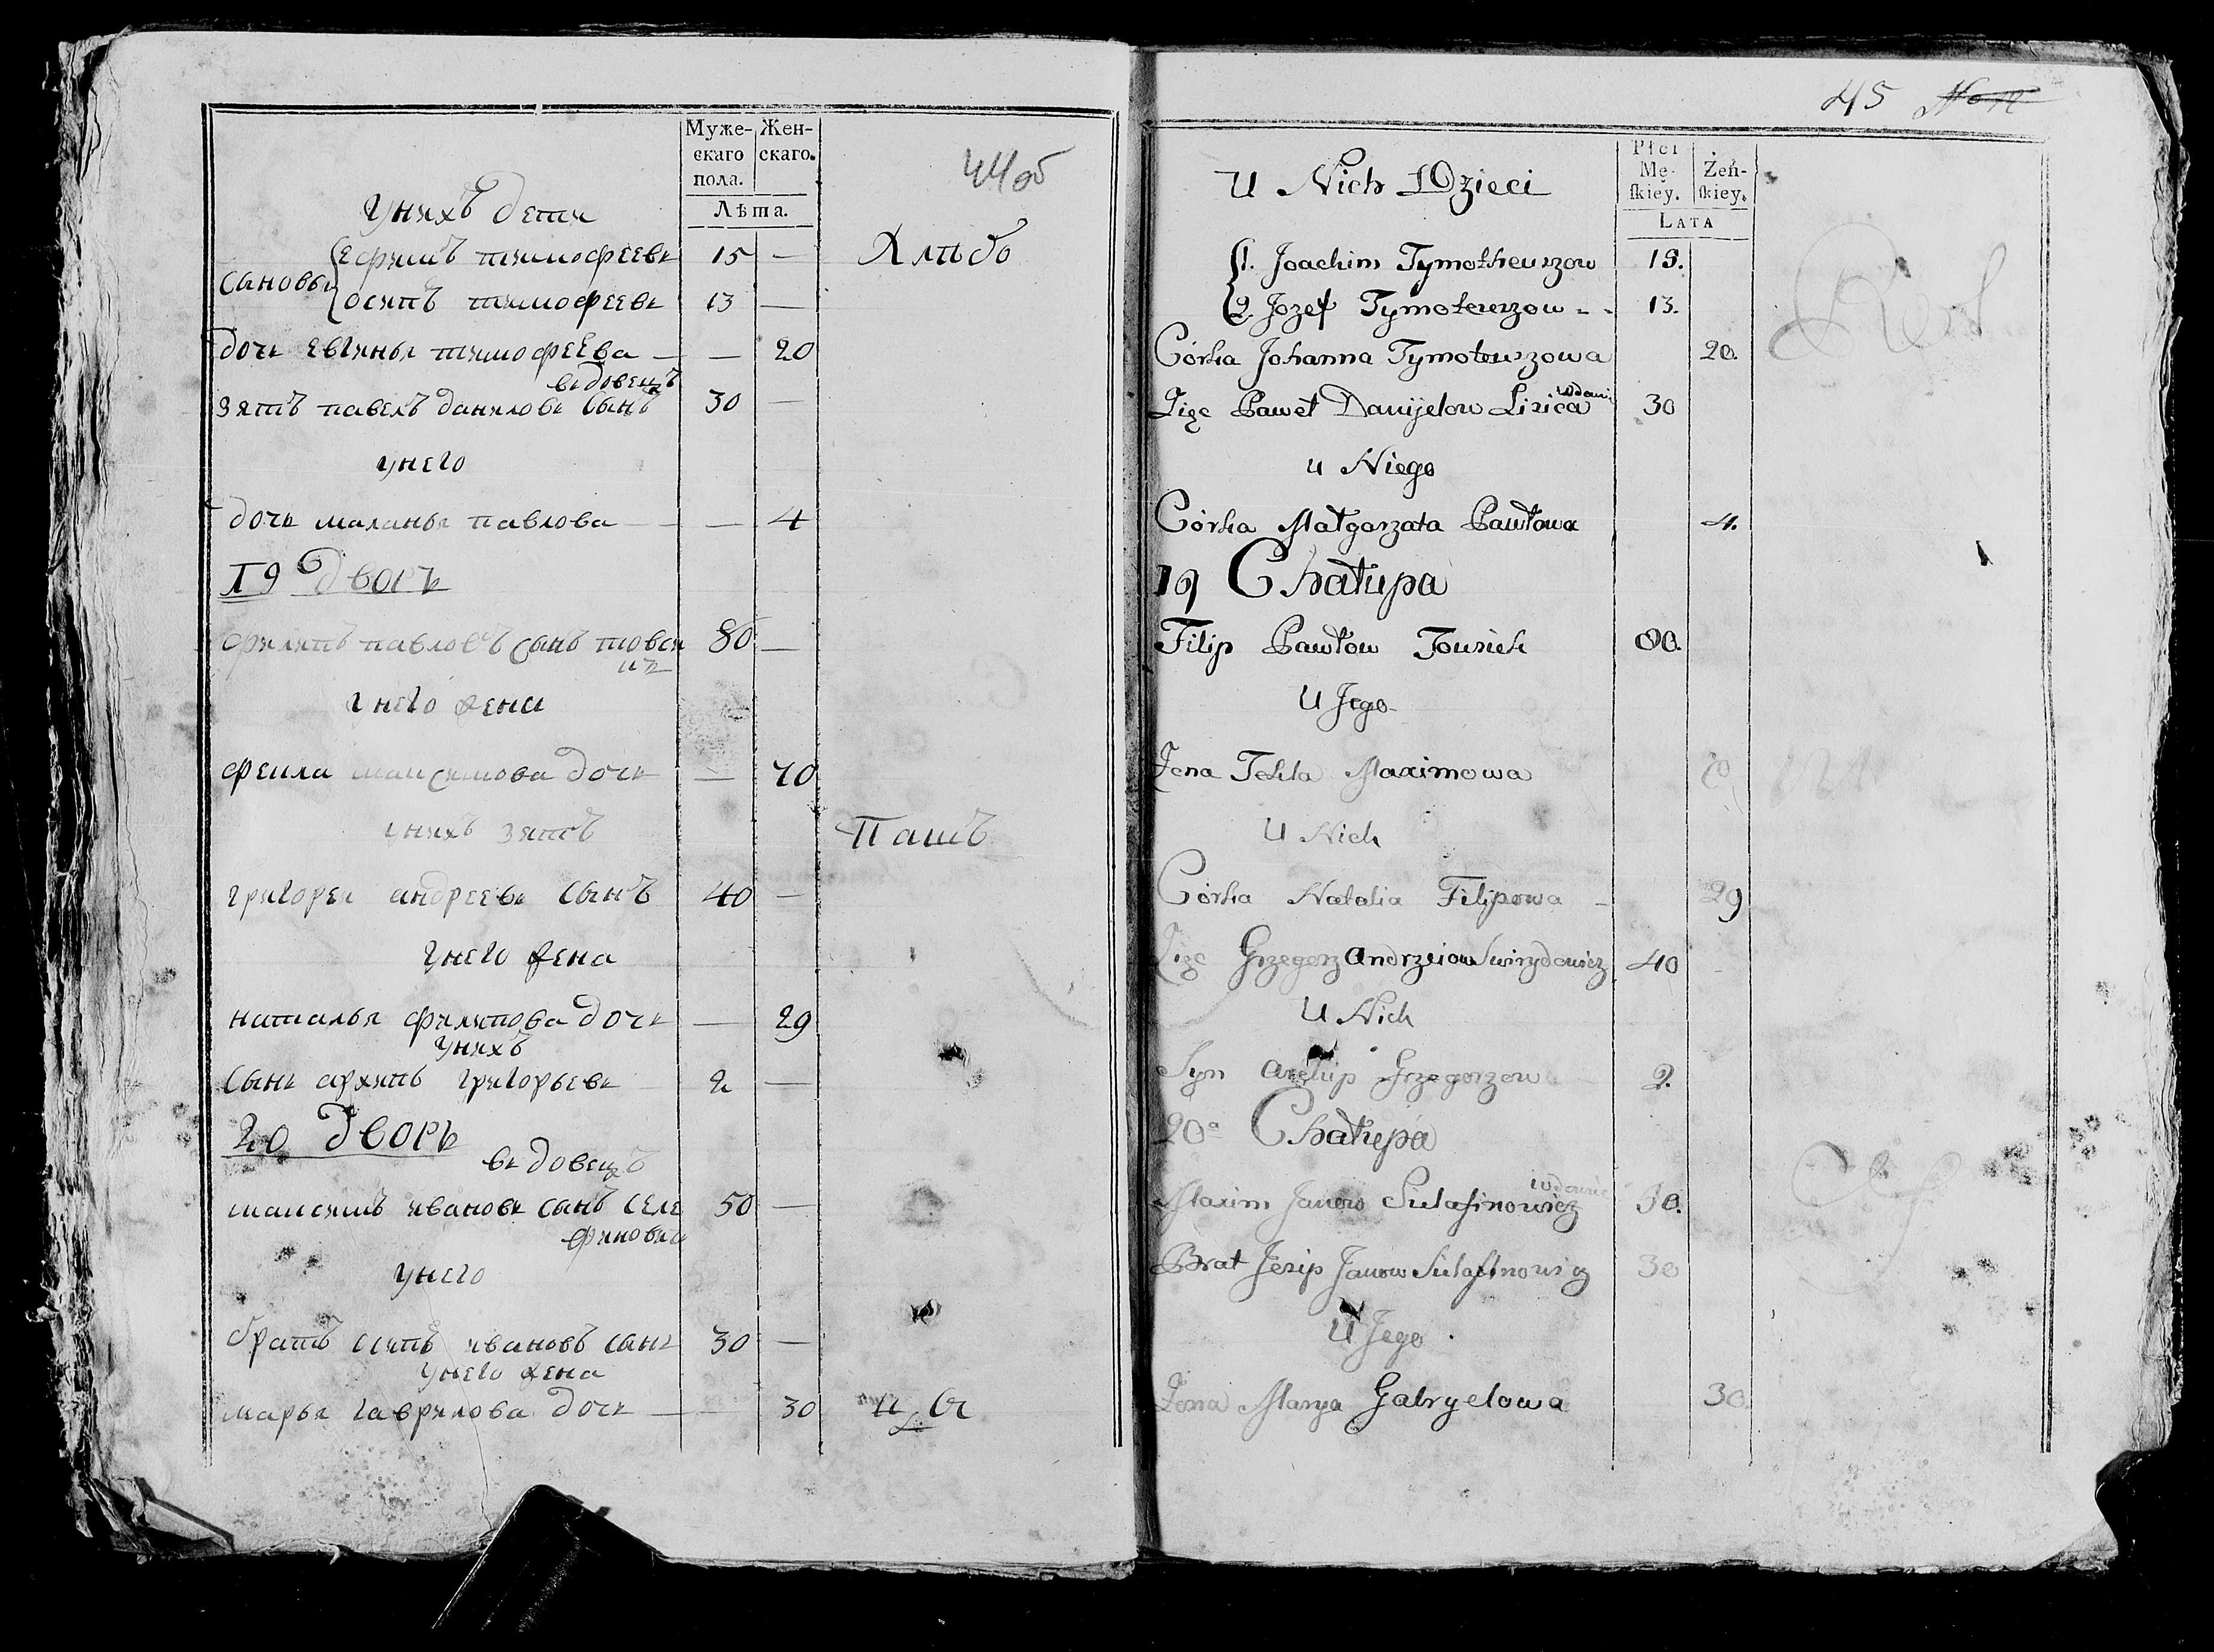 Муже-
скаго
пола.
Жен-
скаго.
Лѣта.
44об
унихъ дети
сановьи
ефимъ тимофеевь 15 —
осипъ тимофеевь 13 —
дочь евгинья тимофеева — — 20
вьдовецъ
зятъ павелъ даниловь сынъ 30 —
унего
дочь маланья павлова — — 4
19 дворь
филипъ павловъ сынъ товси 80 —
унего жена
фекла максимова дочь — 70
унихъ зятъ
григореи андреевь сынъ 40 —
унего жена
наталья филипова дочь — 29
унихъ
сынь архипъ григорьевь 2 —
20 дворь
вьдовецъ
максимъ ивановь сынъ селе 50 —
финовичь
унего
братъ осипъ ивановъ сынь 30 —
унего жена
марья гаврилова дочь — — 30
45
Płci
Mę-
ſkiey.
Żeń-
ſkiey.
LATA
U Nich Dzieci
1. Joachim Tymotheuszow 15.
2. Jozef Tymoteuszow 13.
Córka Johanna Tymoteuszowa 20.
wdowiec
Zięc Paweł Danijelow 30
u Niego
Córka Małgorzata Pawłowa 4.
19 Chałupa
Filip Pawłow Towsich 80.
U Jego
Żona Tekla Maximowa 70
U Nich
Córka Natalia Filipowa 29
Zięc Grzegorz Andrzeiow Swirydowicz 40
U Nich
Syn Archip Grzegorzow 2.
20a Chałupa
Maxim Janow Sulafinowicz 50.
Brat Jesip Janow Sulafinowicz 30
U Jego
Żona Marya Gabryelowa 30.